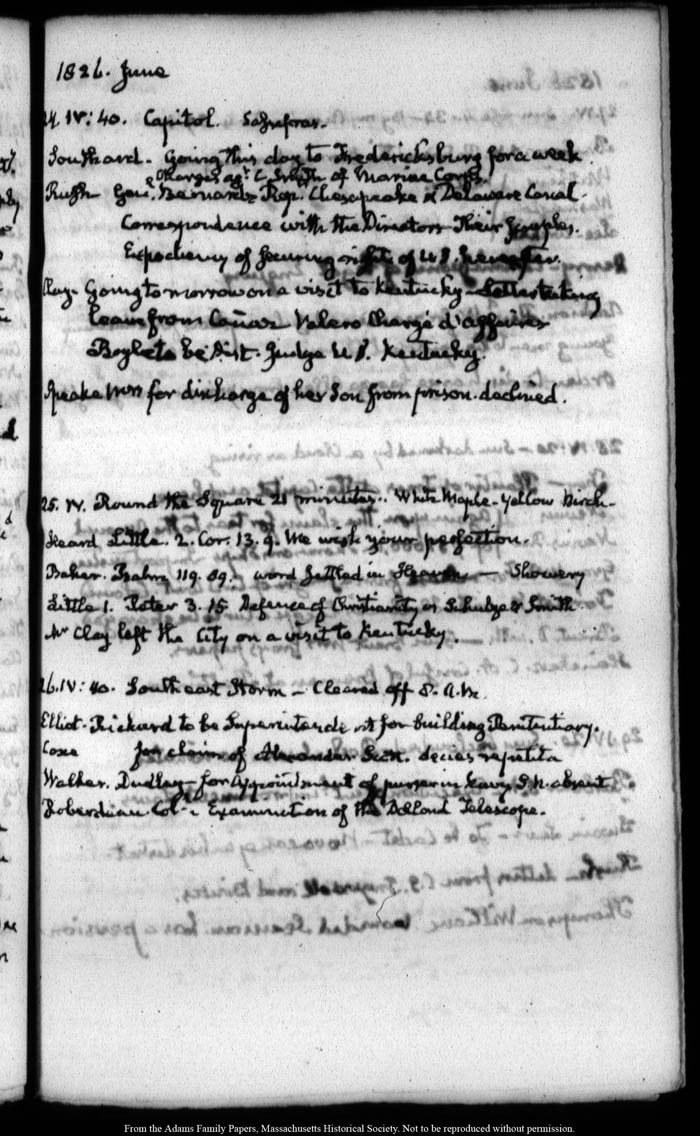 1826. June
24. IV: 40. Capitol. Sassafras.
Southard. Going this day to Fredericksburg for a week
Charges agt. C Smith of Marine Corps.
Rush Genl. Bernard's Rep. Chesapeake & Delaware Canal.
Correspondence with the Directors Their Scruples.
Expediency of securing right of U.S. hereafter.
Clay. Going tomorrow on a visit to Kentucky. Letter taking
leave from Cañaz Valero Chargé d'affaires
Boyle to be Dist. Judge U.S. Kentucky.
Speake Mrs for discharge of her Son from prison. declined.
25. IV. Round the Square 21 minutes. White Maple. Yellow Birch.
Heard Little. 2. Cor. 13. 9. We wish your perfection.
Baker. Psalm 119. 89. word settled in Heaven — Showery
Little 1. Peter 3. 15 Defence of Christianity or Schulze & Smith
Mr Clay left the City on a visit to Kentucky.
26. IV: 40. South east Storm — Cleared off 8. A.M.
Elliot. Rickard to be Superintendent for building Penitentiary.
Coxe for claim of Alexander decies repetita
Walker. Dudley for Appointment of purser in Navy S.N. absent
Roberdeau. Coll. Examination of the Dollond Telescope.
From the Adams Family Papers, Massachusetts Historical Society. Not to be reproduced without permission.